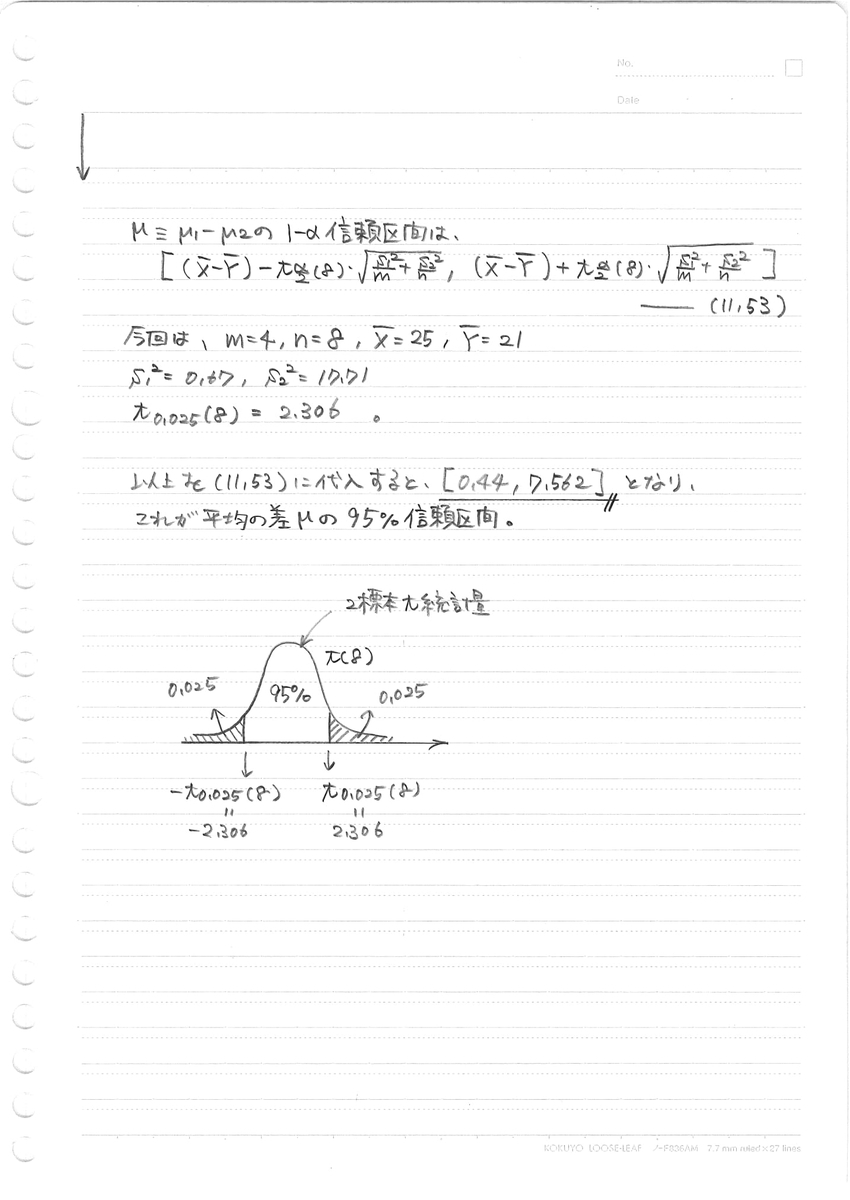 No.
Date
μ ≡ μ1-μ2の 1-α 信頼区間は、
[ (X̄-Ȳ) - tα/2(8)・√(s1²/m + s2²/n) , (X̄-Ȳ) + tα/2(8)・√(s1²/m + s2²/n) ]
—— (11.53)
今回は、m=4, n=8, X̄=25, Ȳ=21
s1²= 0.67, s2²= 17.71
t0.025(8) = 2.306 。
以上を(11.53)に代入すると、[0.44, 7.562] となり、
これが平均の差μの95%信頼区間。
2標本t統計量
t(8)
0.025 95% 0.025
-t0.025(8) t0.025(8)
= =
-2.306 2.306
KOKUYO LOOSE-LEAF ノ-F836AM 7.7 mm ruled×27 lines